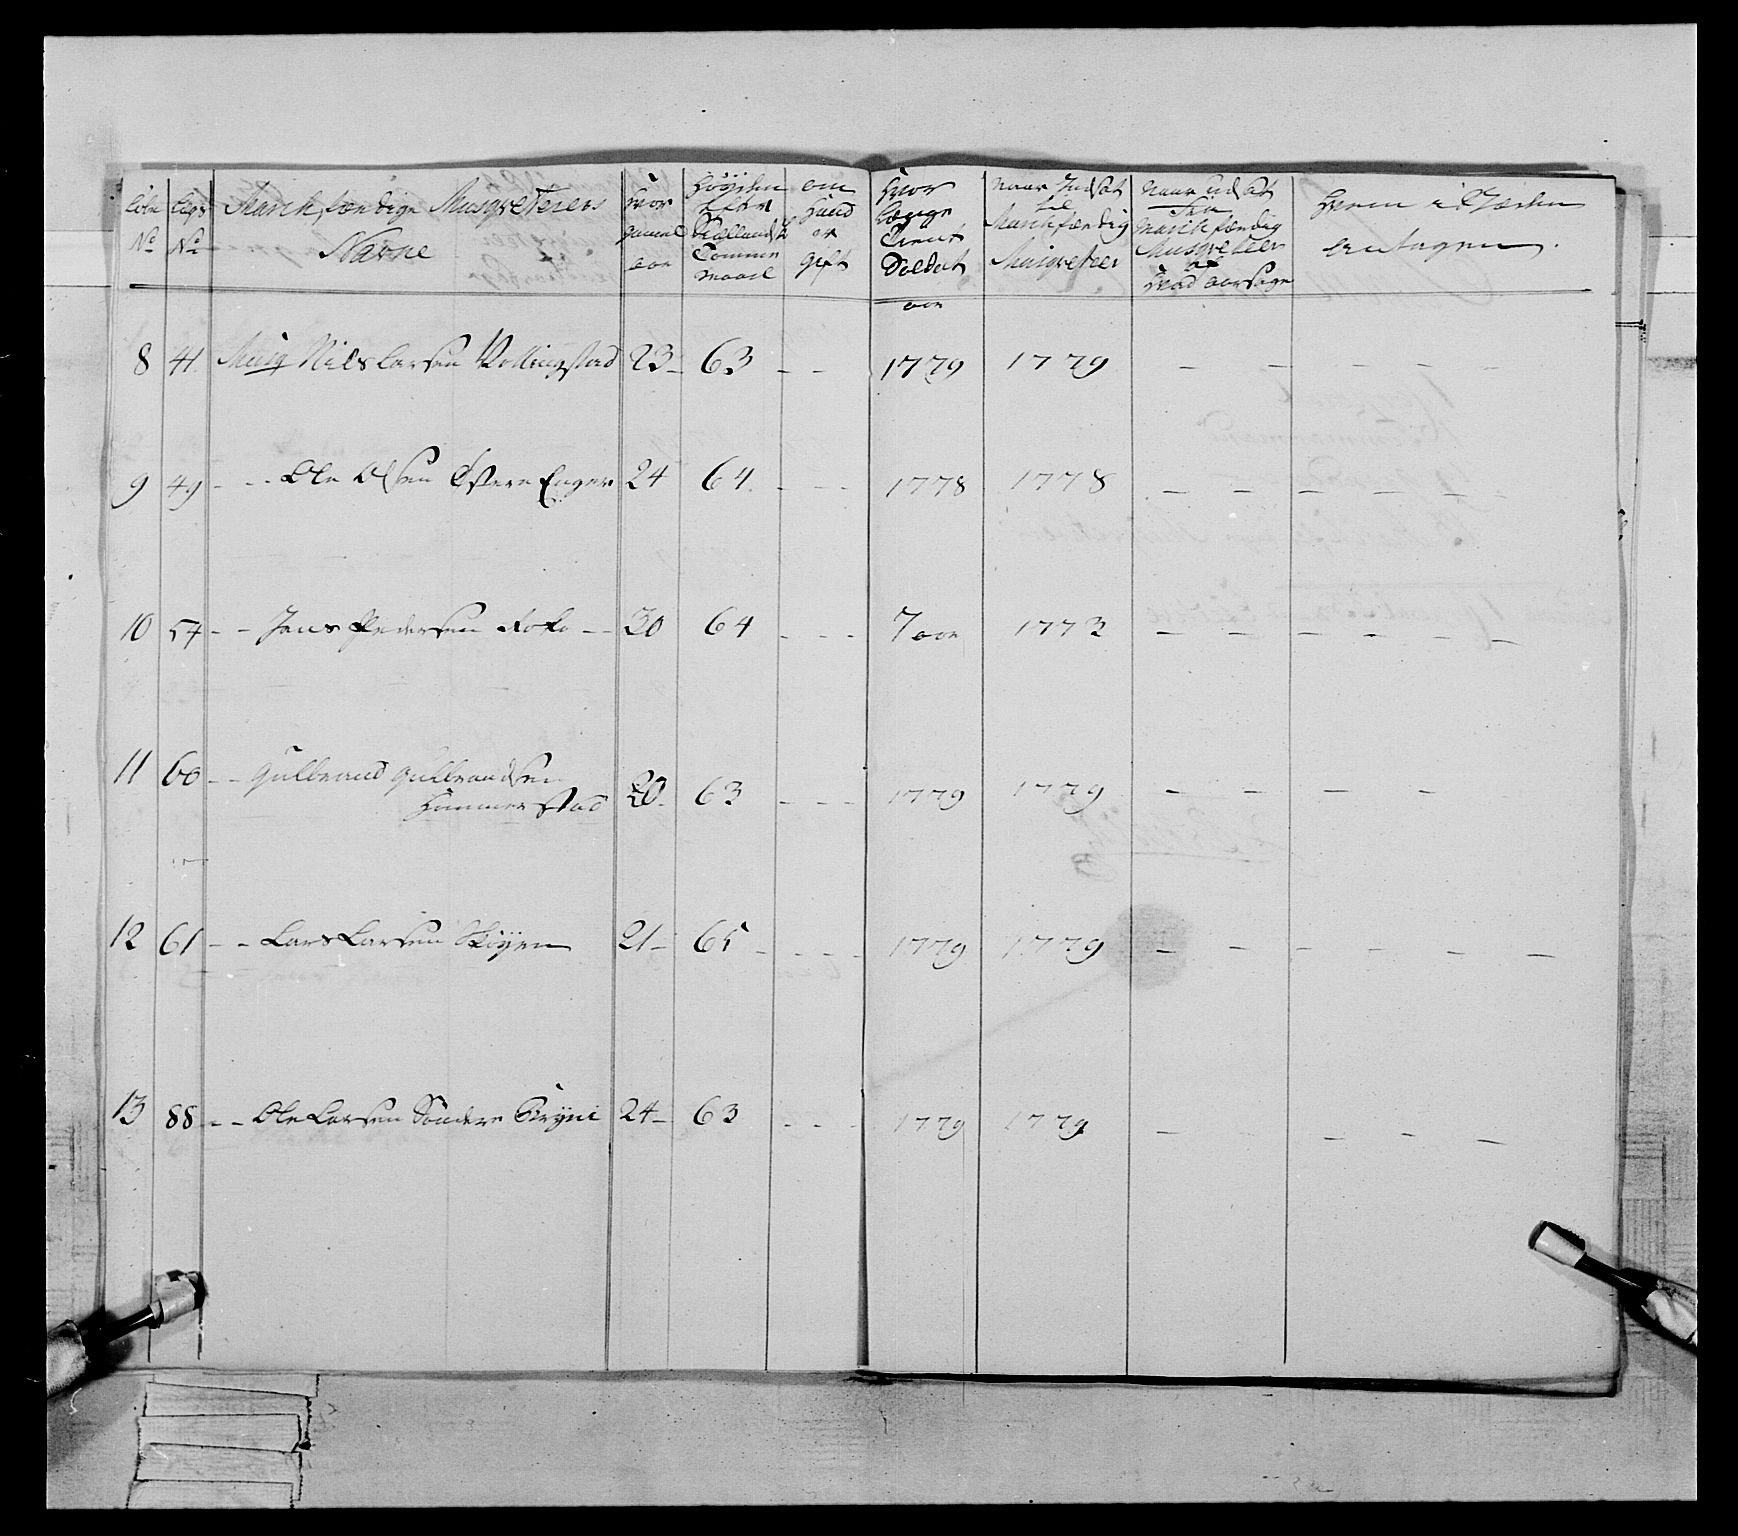 Lobe No | Lægs No | Marckfærdige Musqveteers Nafne | hvor gammel aar | Høyden efter Siællands Tomme maal | om Hand er gift | Hvor længe Tient Soldat aar | naar Indsat til Marckfærdig Musqveteer | naar udsat fra Marckfærdig Musqveteer af hvad aarsage | hvem i Stæden antagen.
8 | 41 | Musq Nils Larsen Wollingstad | 23 | 63 | - - | 1779 | 1779 | - - - - - -
9 | 49 | - - Ole Olsen Østere Enger | 24 | 64 | - - - | 1778 | 1778 | - - - - - -
10 | 54 | - - Jens Pedersen Foko | 30 | 64 | - - - | 7 aar | 1773 | - - - - - -
11 | 60 | - - Gulbrand Gulbrandsen
Hammerstad | 20 | 63 | - - - | 1779 | 1779 | - - - -
12 | 61 | - - Lars Larsen Skøyen | 21 | 65 | - - - - | 1779 | 1779 | - - - - - -
13 | 88 | - - Ole Larsen Søndere Bryni | 24 | 63 | - - - | 1779 | 1779 | - - - - -